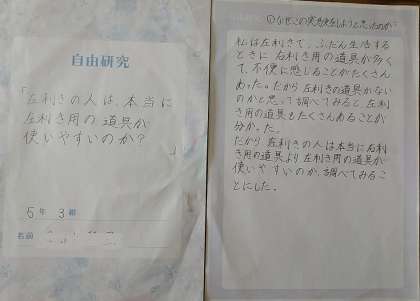 自由研究
「左利きの人は、本当に
左利き用の道具が
使いやすいのか?
」
5年 3組
名前
①なぜこの実験をしようと思ったのか?
私は左利きで、ふだん生活する
ときに右利き用の道具が多く
て、不便に感じることがたくさん
あった。だから左利き用の道具がない
のかと思って調べてみると、左利
き用の道具もたくさんあることが
分かった。
だから左利きの人は本当に右利
き用の道具より左利き用の道具が
使いやすいのか、調べてみるこ
とにした。